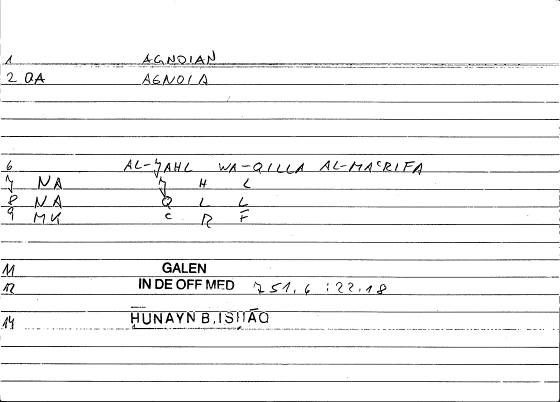 1 AGNOIAN
2 QA AGNOIA
6 AL-JAHL WA-QILLA AL-MAᶜRIFA
7 NA J H L
8 NA Q L L
9 MK ᶜ R F
11 GALEN
12 IN DE OFF MED 751,6 :22.18
14 HUNAYN B. ISḤĀQ